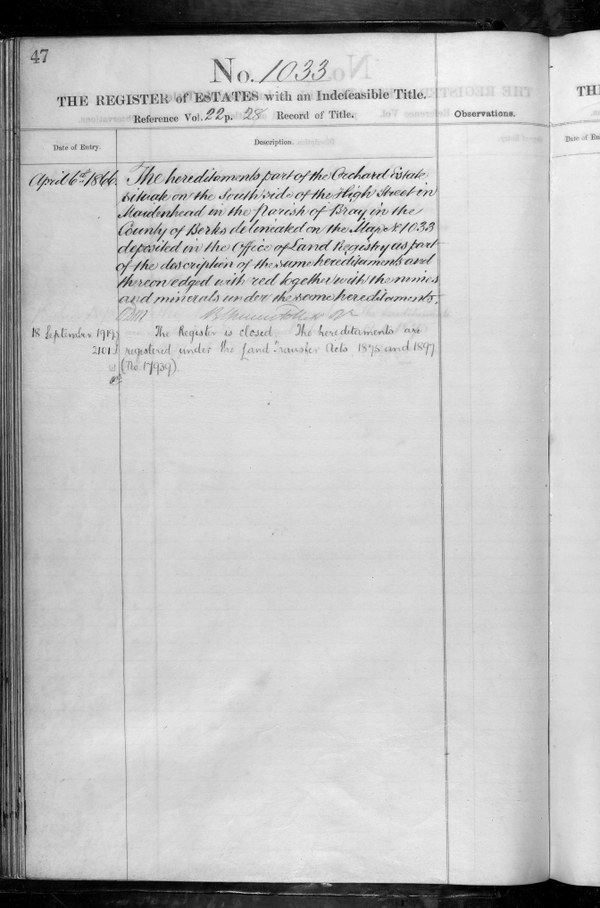 47
No. 1033
THE REGISTER of ESTATES with an Indefeasible Title.
Reference Vol. 22 p. 28 Record of Title.
Observations.
Date of Entry.
Description.
April 6th 1866.
The hereditaments part of the Orchard Estate
situate on the South side of the High Street in
Maidenhead in the Parish of Bray in the
County of Berks delineated on the Map No 1033
deposited in the Office of Land Registry as part
of the description of the same hereditaments and
thereon edged with red together with the mines
and minerals under the same hereditaments.
18 September 1919
2101
The Register is closed. The hereditaments are
registered under the Land Transfer Acts 1875 and 1897
(No 17939)
TH
Date of En